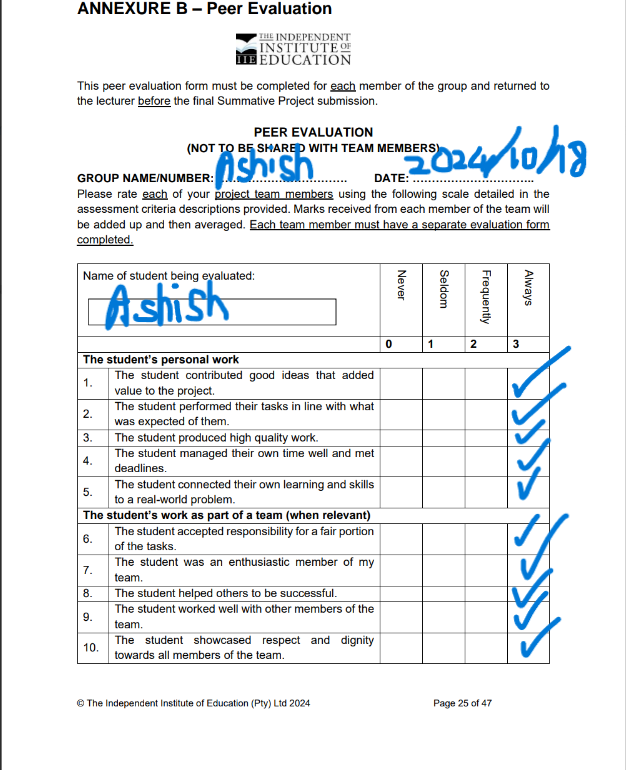 ANNEXURE B – Peer Evaluation
THE INDEPENDENT
INSTITUTE OF
IIE EDUCATION
This peer evaluation form must be completed for each member of the group and returned to
the lecturer before the final Summative Project submission.
PEER EVALUATION
(NOT TO BE SHARED WITH TEAM MEMBERS)
GROUP NAME/NUMBER: Ashish DATE: 2024/10/18
Please rate each of your project team members using the following scale detailed in the
assessment criteria descriptions provided. Marks received from each member of the team will
be added up and then averaged. Each team member must have a separate evaluation form
completed.
Name of student being evaluated:
Ashish
Never
Seldom
Frequently
Always
0 1 2 3
The student's personal work
1. The student contributed good ideas that added
value to the project.
2. The student performed their tasks in line with what
was expected of them.
3. The student produced high quality work.
4. The student managed their own time well and met
deadlines.
5. The student connected their own learning and skills
to a real-world problem.
The student's work as part of a team (when relevant)
6. The student accepted responsibility for a fair portion
of the tasks.
7. The student was an enthusiastic member of my
team.
8. The student helped others to be successful.
9. The student worked well with other members of the
team.
10. The student showcased respect and dignity
towards all members of the team.
© The Independent Institute of Education (Pty) Ltd 2024 Page 25 of 47